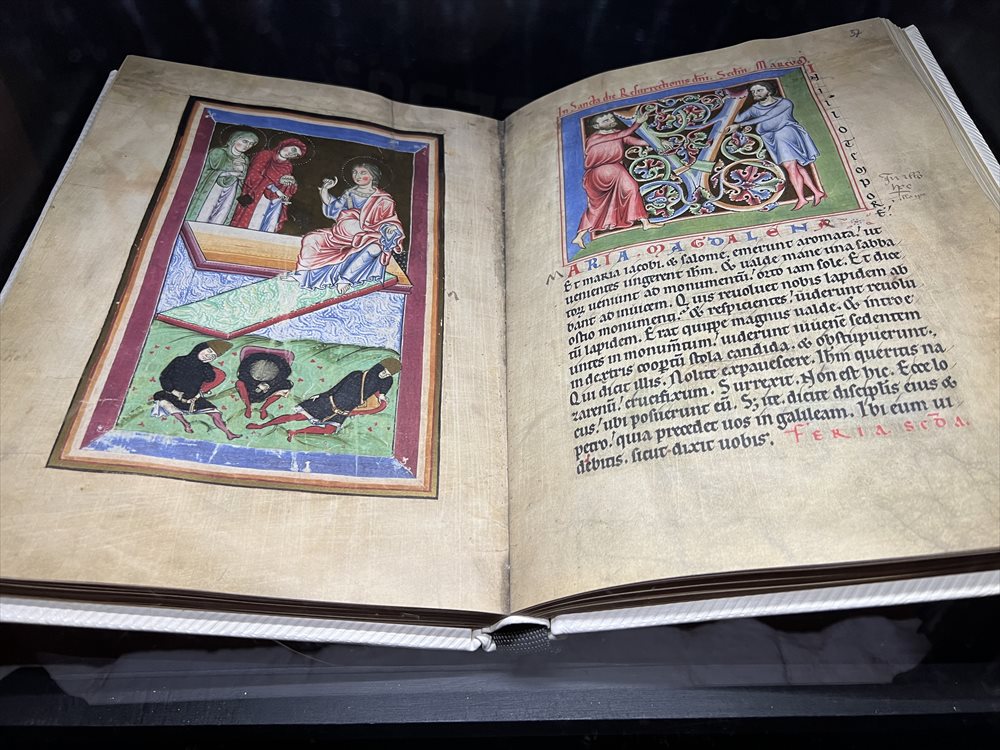 37
In Sancta die Resurrectionis dni. Scdm Marcum.
IN ILLO TEMPORE.
MARIA MAGDALENAE
Et maria iacobi, & salome, emerunt aromata, ut
uenientes ungerent ihm. & ualde mane una sabba
torum ueniunt ad monumentum, orto iam sole. Et dice
bant ad inuicem. Quis reuoluet nobis lapidem ab
ostio monumenti. & respicientes, uiderunt reuolu
tum lapidem. Erat quippe magnus ualde. & introe
untes in monumtum, uiderunt iuuene sedentem
in dextris coopertu stola candida, & obstupuerunt.
Qui dicit illis. Nolite expauescere. Ihm queritis na
zarenu, crucifixum. Surrexit. Non est hic. Ecce lo
cus, ubi posuerunt eu. S; ite, dicite discipulis eius &
petro, quia precedet uos in galileam. Ibi eum ui
debitis, sicut dixit uobis. FERIA SCDA.